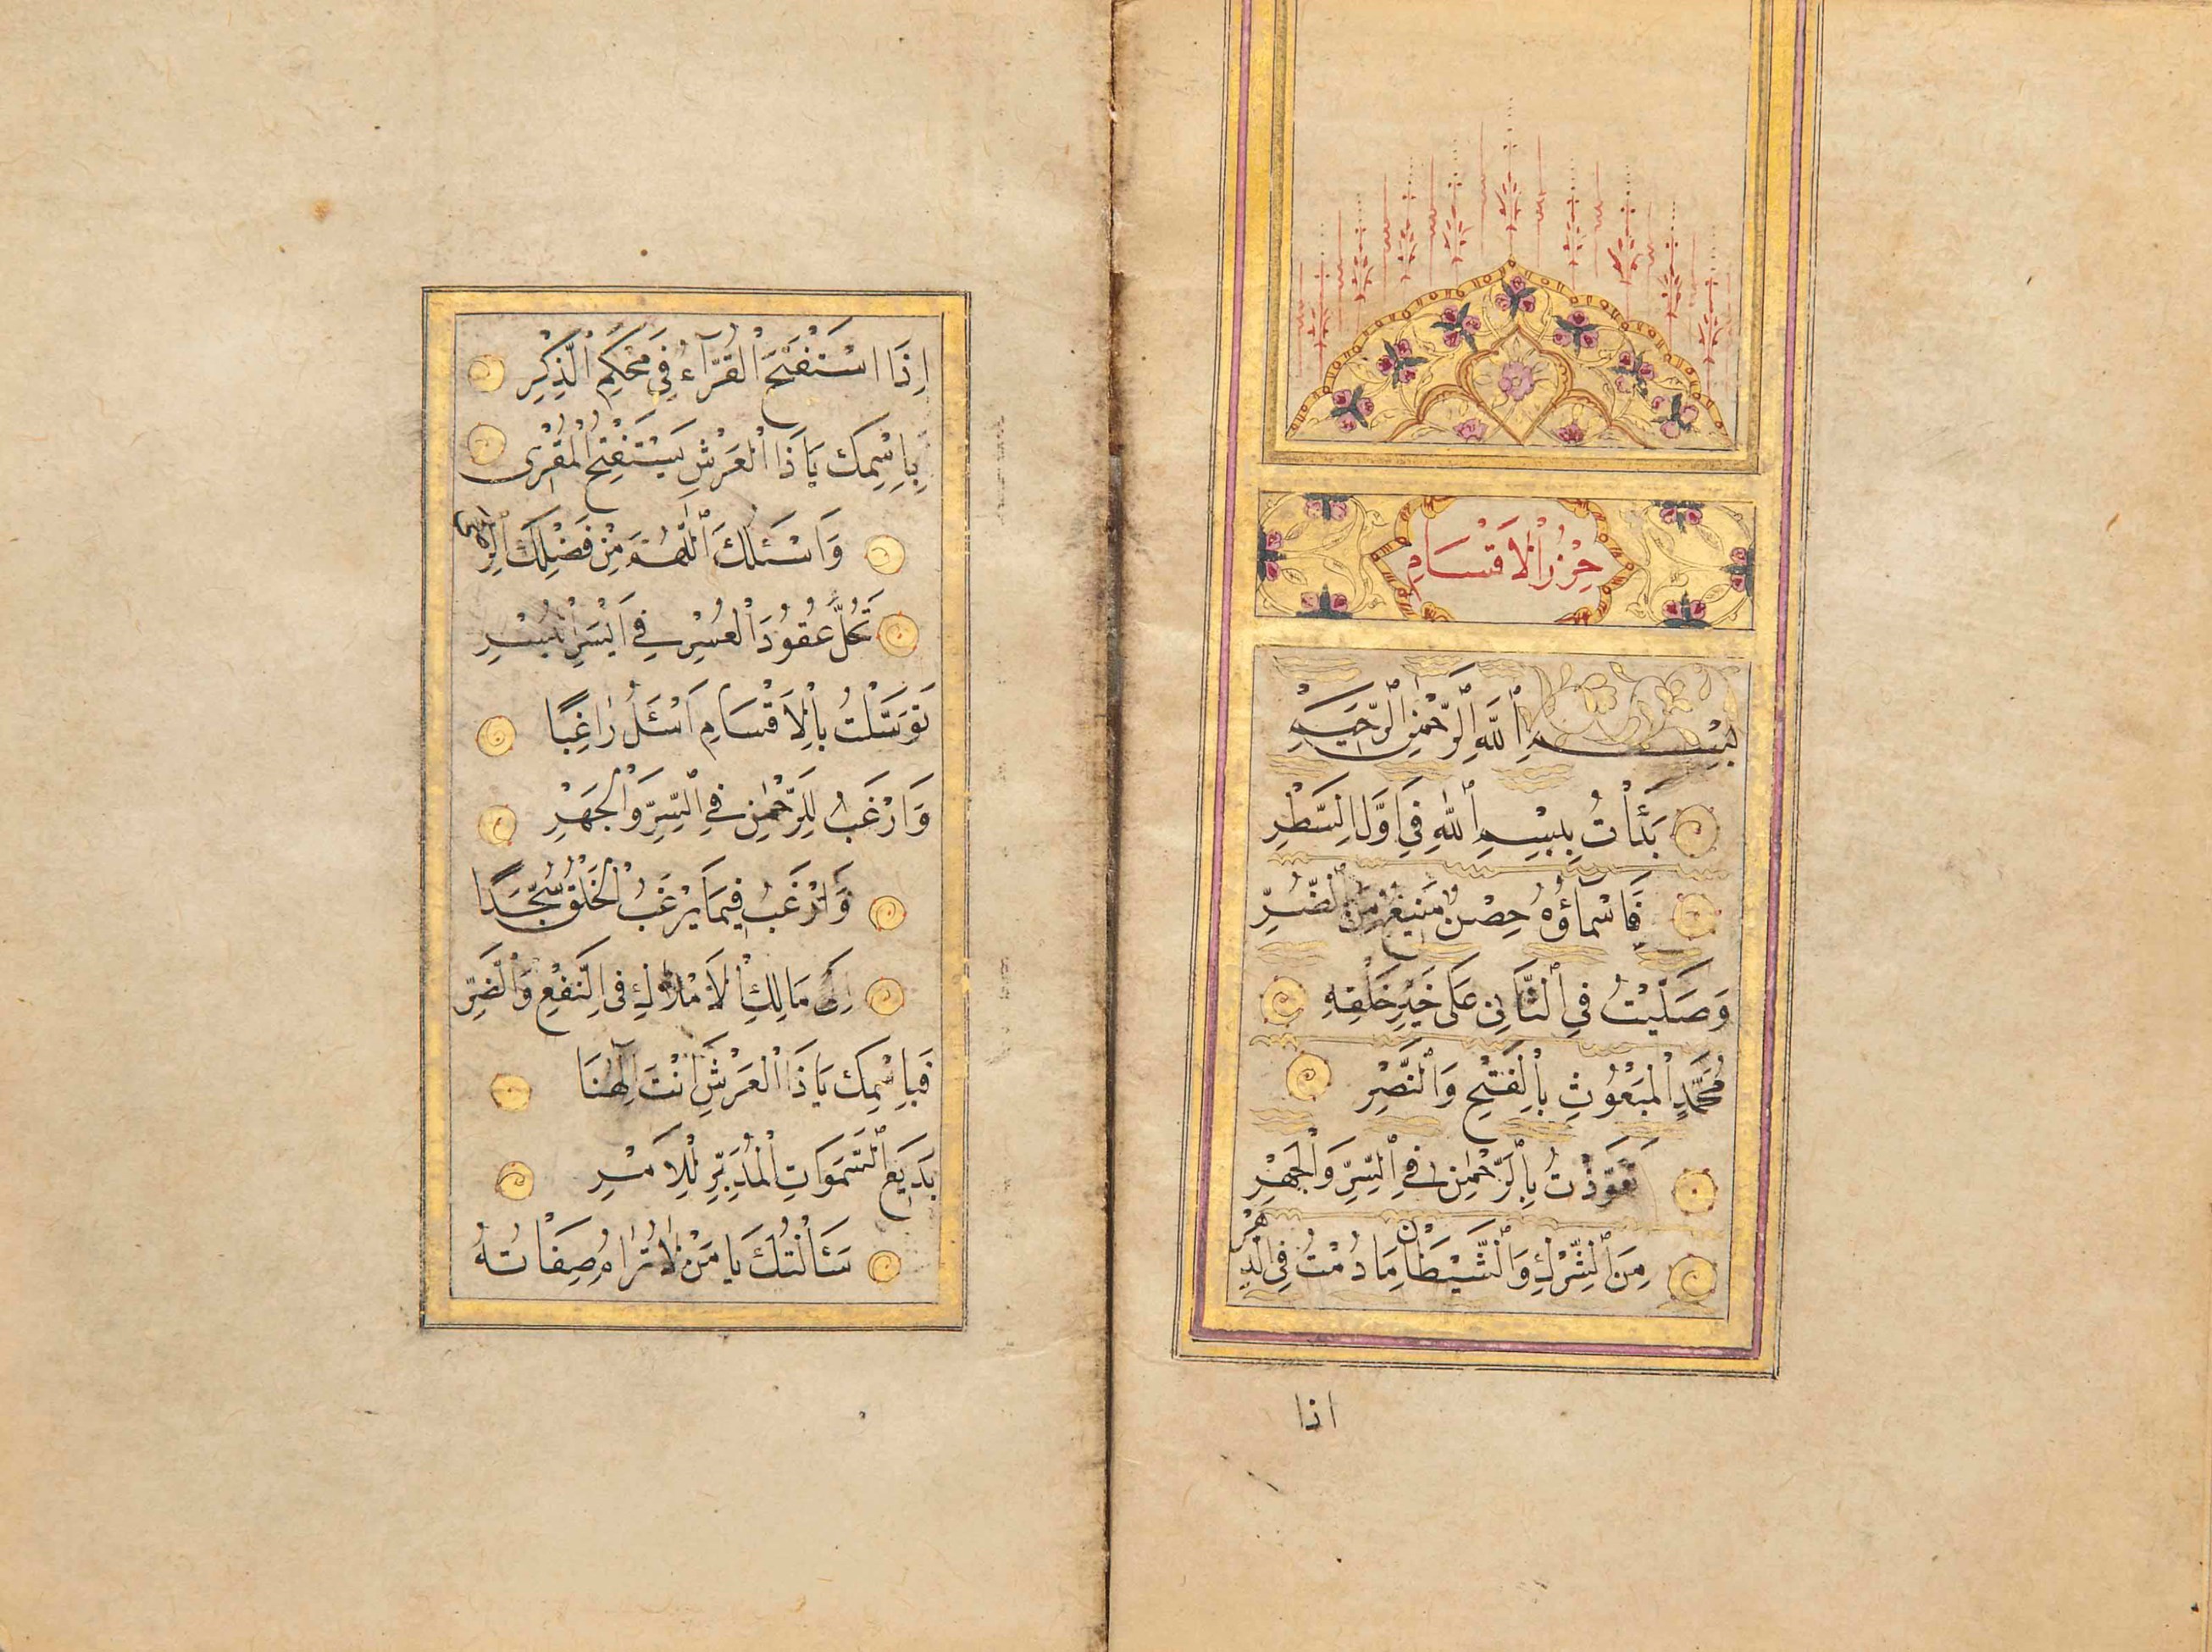 حِرْزُ الْاَقْسَامِ
بِسْمِ اللّٰهِ الرَّحْمٰنِ الرَّحِيمِ
بَدَأْتُ بِبِسْمِ اللّٰهِ فِي اَوَّلِ السَّطْرِ
فَاَسْمَاؤُهُ حِصْنٌ مَنِيعٌ مِنَ الضُّرِّ
وَصَلَّيْتُ فِي الثَّانِي عَلَى خَيْرِ خَلْقِهِ
مُحَمَّدٍ الْمَبْعُوثِ بِالْفَتْحِ وَالنَّصْرِ
تَعَوَّذْتُ بِالرَّحْمٰنِ فِي السِّرِّ وَالْجَهْرِ
مِنَ الشِّرْكِ وَالشَّيْطَانِ مَا دُمْتُ فِي الدَّهْرِ
اذا
اِذَا اسْتَفْتَحَ الْقُرَّآءُ فِي مُحْكَمِ الذِّكْرِ
بِاِسْمِكَ يَا ذَا الْعَرْشِ يَسْتَفْتِحُ الْمُقْرِى
وَاَسْئَلُكَ اللّٰهُمَّ مِنْ فَضْلِكَ الَّذِي
تَحُلُّ عُقُودَ الْعُسْرِ فِي اَيْسَرِ الْيُسْرِ
تَوَسَّلْتُ بِالْاَقْسَامِ اَسْئَلُ رَاغِبًا
وَاَرْغَبُ لِلرَّحْمٰنِ فِي السِّرِّ وَالْجَهْرِ
وَاَرْغَبُ فِيمَا يَرْغَبُ الْخَلْقُ سُجَّدًا
اِلَى مَالِكِ الْاَمْلَاكِ فِي النَّفْعِ وَالضَّرِّ
فَبِاِسْمِكَ يَا ذَا الْعَرْشِ اَنْتَ اِلٰهُنَا
بَدِيعَ السَّمَوَاتِ الْمُدَبِّرِ لِلْاَمْرِ
سَئَالْتُكَ يَا مَنْ لَا تُرَامُ صِفَاتُهُ